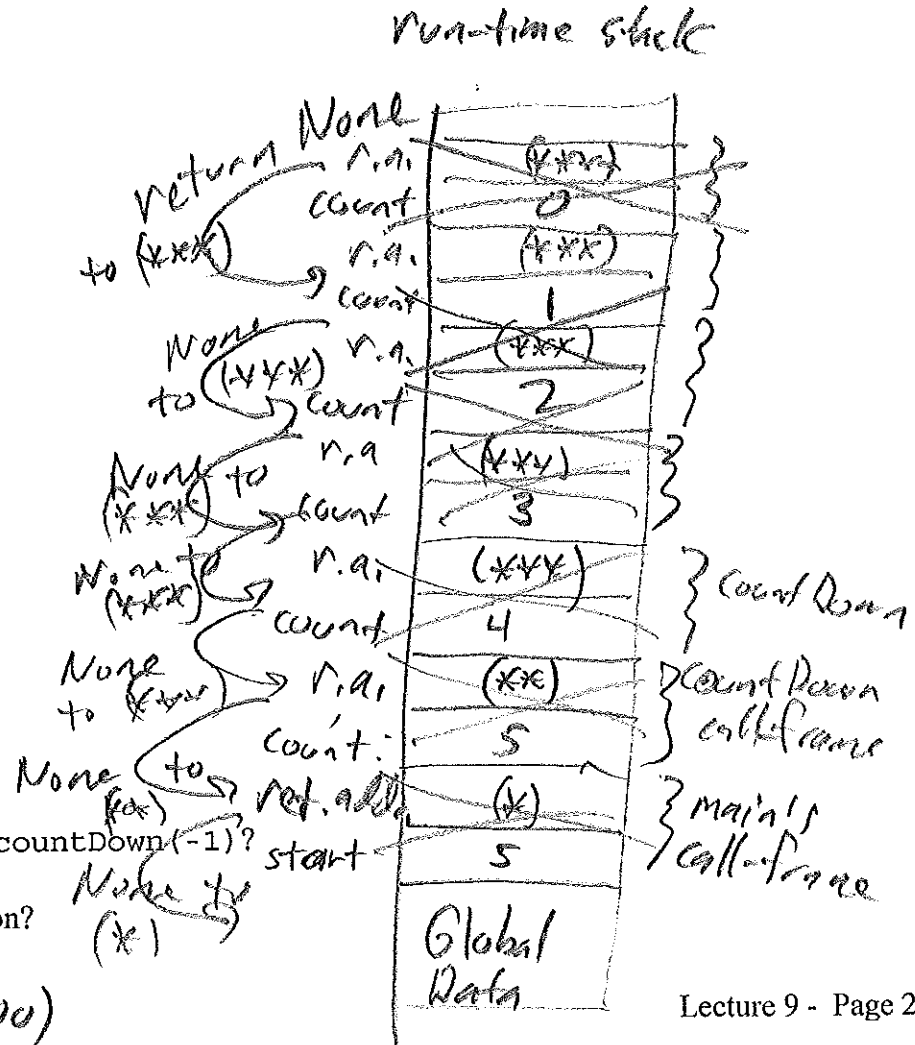 run-time stack
return None
r.a. (***)
count 0
to (***)
r.a. (***)
count 1
None
r.a. (***)
to (***)
count 2
r.a (***)
None to
(***)
count 3
r.a. (***)
None to
(***)
count 4
CountDown
None
to (***)
r.a. (**)
count: 5
CountDown
call-frame
None to
(**)
ret. addr (*)
start 5
main's
call-frame
countDown(-1)?
None to
(*)
on?
Global
Data
Lecture 9 - Page 2